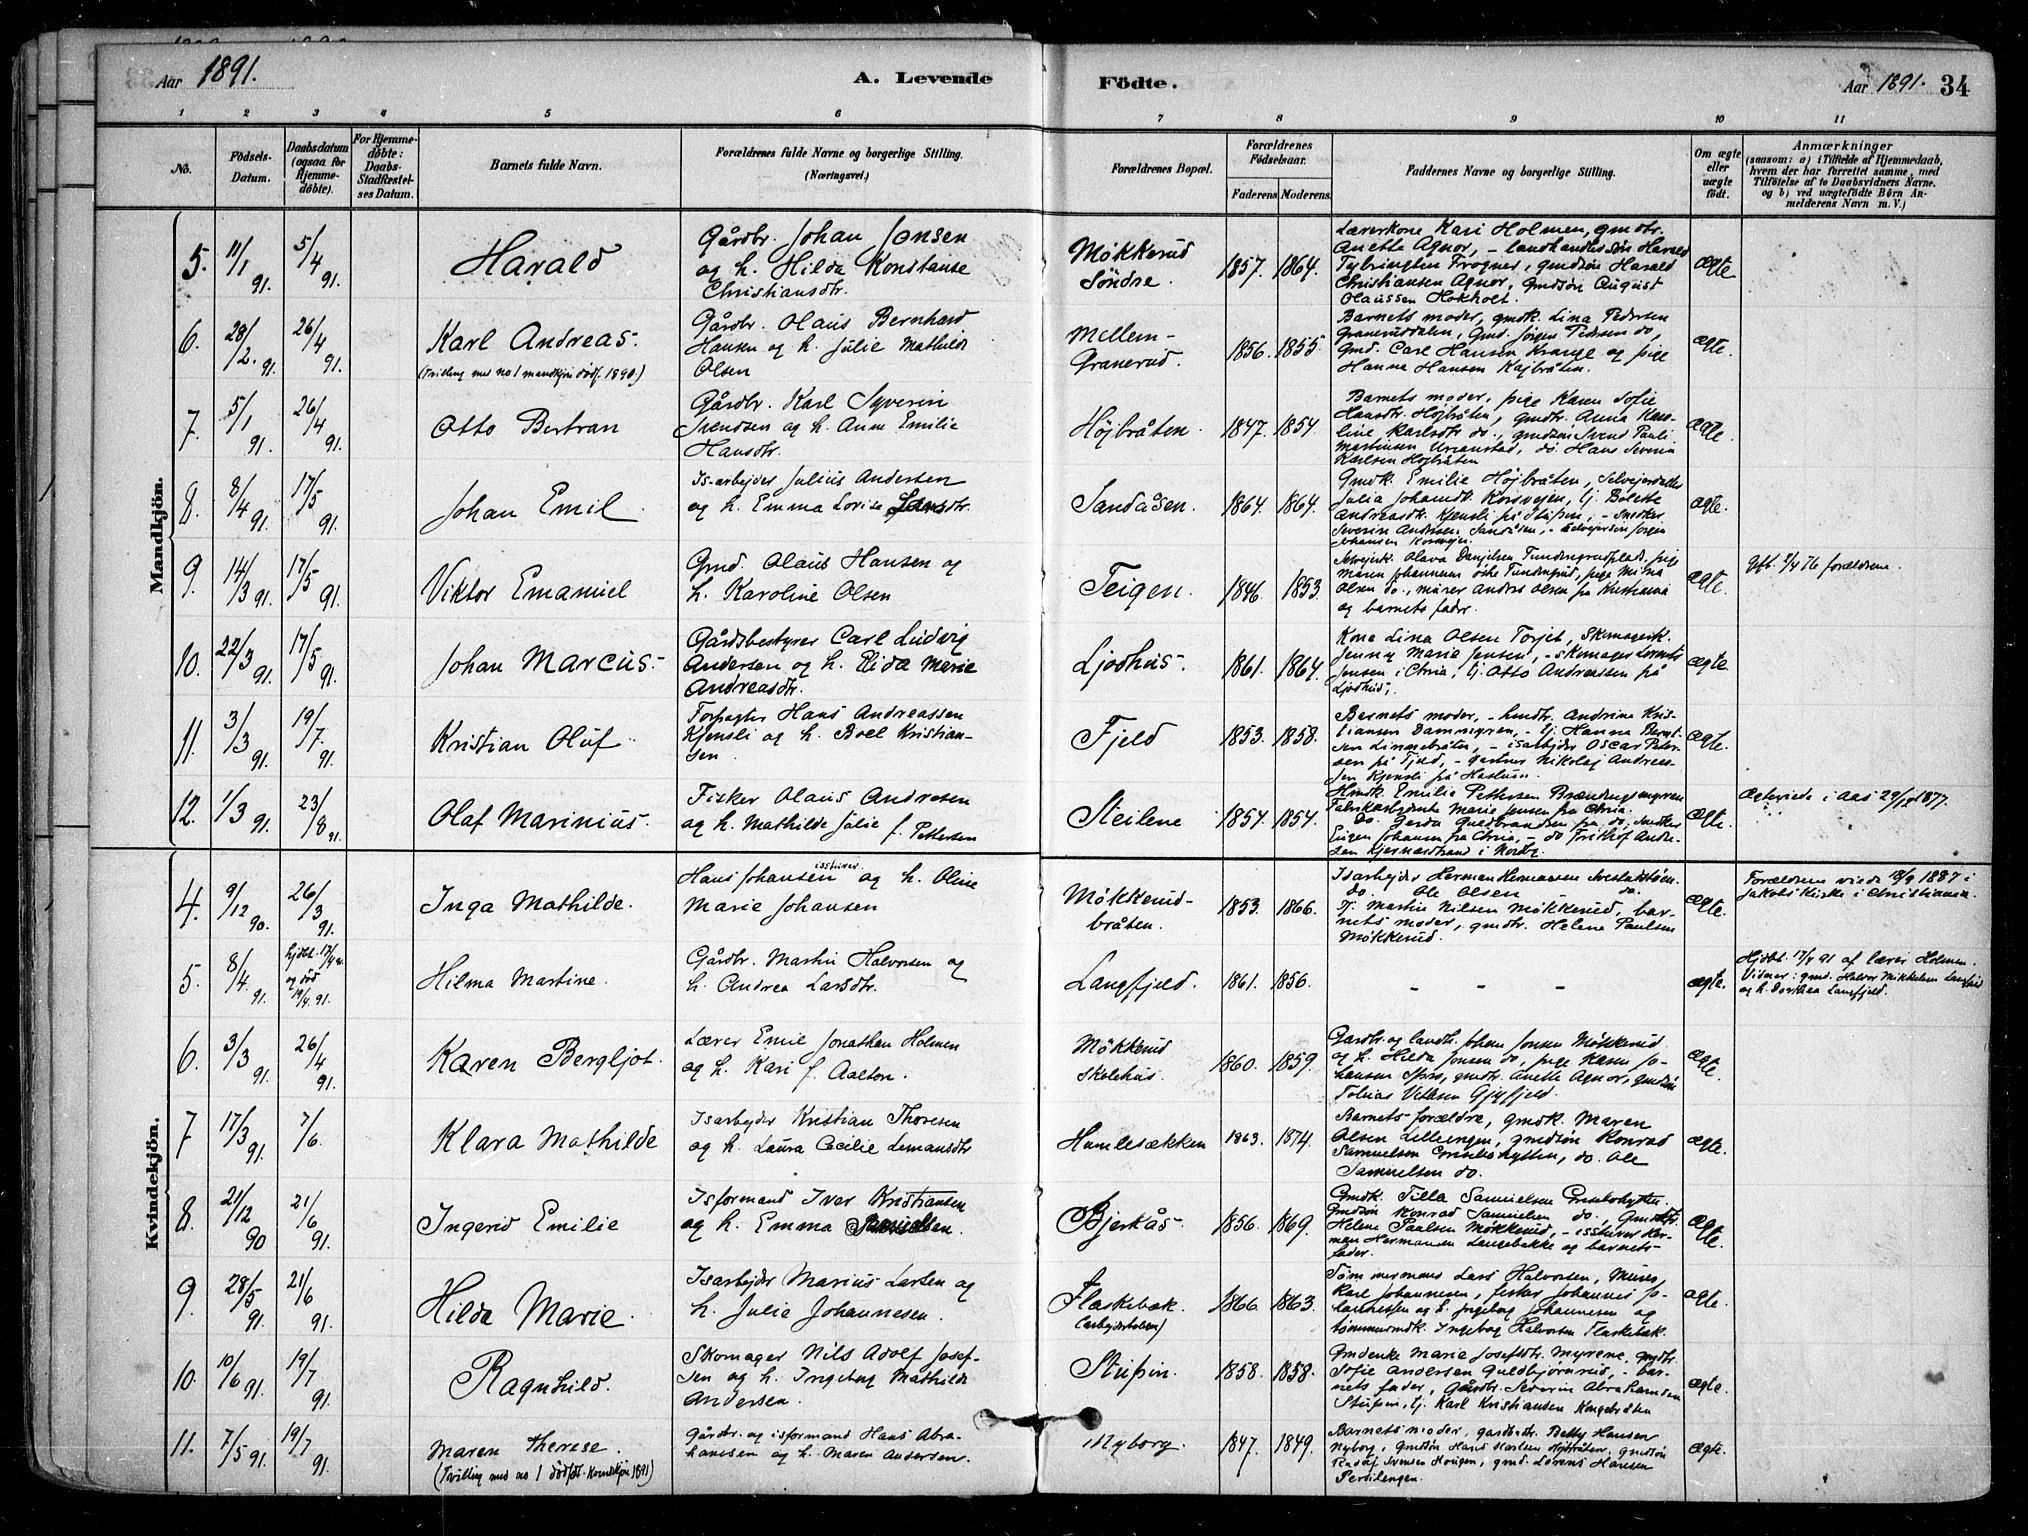 Aar 1891.
A. Levende
Födte.
Aar 1891. 34
1 2 3 4 5 6 7 8 9 10 11
No.
Födsels-
Datum.
Daabsdatum
(ogsaa for
Hjemme-
döbte).
For Hjemme-
döbte:
Daabs-
Stadfæstel-
ses Datum.
Barnets fulde Navn.
Forældrenes fulde Navne og borgerlige Stilling.
(Næringsvei.)
Forældrenes Bopæl.
Forældrenes
Födselsaar.
Faderens Moderens.
Faddernes Navne og borgerlige Stilling.
Om ægte
eller
uægte
födt.
Anmærkninger
(saasom: a) i Tilfælde af Hjemmedaab,
hvem der har forrettet samme, med
Tilföielse af to Daabsvidners Navne,
og b) ved uægtefödte Börn An-
melderens Navn m. V.)
Mandkjön.
5. 11/1 91. 5/4 91. Harald
Gårdbr. Johan Jensen
og h. Hilda Konstanse
Christiansdtr.
Møkkerud
Søndre. 1857. 1864.
Lærerkone Kari Holmen, gmdtr.
Anette Agnor, – landhandlersøn Harald
Frogner, gmdsøn Harald
Christiansen Agnor, gmdsøn August
Olaussen Hokholt.
ægte
6. 28/2. 91. 26/4 91. Karl Andreas.
(Tvilling med no 1 mandkjøn dødf. 1890.)
Gårdbr. Olaus Bernhard
Hansen og h. Julie Mathilde
Olsen
Mellem-
Granerud. 1856. 1855
Barnets moder, gmdk. Lina Pedersen
Graneruddalen, Gmd. Jørgen Pedersen do,
Gmd. Carl Hansen Krange og pige
Hanna Hansen Højbråten.
ægte.
7. 5/1 91. 26/4 91. Otto Bertran
Gårdbr. Karl Syverin
Svendsen og h. Anne Emilie
Hansdtr.
Højbråten. 1847. 1854
Barnets moder, pige Karen Sofie
Hansdtr. Højbråten, gmdtr. Anna Kar-
line Karlsdtr do., gmdsøn Svend Pauli
Martinsen, do. Hans Severin
Karlsen Højbråten
ægte.
8. 8/4 91. 17/5 91. Johan Emil
Isarbejder Julius Andersen
og h. Emma Lovise
Sandåsen. 1864. 1864.
Gmdk. Emilie Højbråten, Selvejerdatter
Julia Johansdt. Korsvejen, tj. Bolette
Andreasdt. Kjensli på Stubljan, – Snedker
Severin Andersen Sandåsen, – Selvejersøn Jørgen
Johansen Korsvejen.
ægte.
9. 14/3 91. 17/5 91. Viktor Emanuel
Gmd. Olaus Hansen og
h. Karoline Olsen
Teigen. 1846. 1853
Olava Danjelsen, pige
Maren Johannesen, pige Mina
Olsen do., murer Anders Olsen fra Kristiania
og barnets fader.
ægte.
Gft. 9/4 76 forældrene.
10. 22/3 91. 17/5 91. Johan Marcus.
Gårdsbestyrer Carl Ludvig
Andersen og h. Elida Marie
Andreasdtr.
Ljodhus. 1861. 1864.
Kone Lina Olsen Torjet, Skomagerk.
Jenny Marie Jensen, – skomager Lorents
Jensen i Chria, tj. Otto Andreassen på
Ljodhus.
ægte.
11. 3/3 91. 19/7. 91. Kristian Oluf
Forpagter Hans Andreassen
Kjensli og h. Boel Kristian-
sen
Fjeld 1853. 1858.
Barnets moder, – hmdtr. Andrine Kris-
tiansen Dammyren, – tj. Hanna Bernt-
sen Linnebråten, – isarbejder Oscar Peter-
sen på Fjeld, – gartner Nikolaj Andreas-
sen Kjensli på
ægte.
12. 1/3 91. 23/8 91. Olaf Marinius.
Fisker Olaus Andresen
og h. Mathilde Julie f. Pettersen
Steilene 1854. 1854.
Hmdk. Emilie Pettersen Brændingsmyren
Fabrikarbejderske Marie Jensen fra Chria
do. Gerda Guldbrandsen fra do, Snedker
Eugen Johansen fra Chria, – do Fritiof Andre-
sen i Nordby
ægte.
Ægteviede i Aas 29/12 1877.
Kvindekjön.
4. 9/12 90. 26/3 91. Inga Mathilde.
Hans Johansen isskriver og h. Oline
Marie Johansen
Møkkerud-
bråten. 1853. 1866.
Isarbejder Herman Hermansen
do. Ole Olsen do.
Tj. Martin Nilsen Møkkerud, bar-
nets moder, gmdtr. Helene Paulsen
Møkkerud.
ægte.
Forældrene viede 18/9 1887 i
Jakobs Kirke i Christiania.
5. 8/4. 91. hjdbt. 17/4 91
og død
19/4. 91. Hilma Martine.
Gårdbr. Martin Halvorsen og
h. Andrea Larsdtr.
Langfjeld. 1861. 1856. – – – ægte.
Hjdbt. 17/4 91 af lærer Holmen.
Vidner: gmd. Halvor Mikkelsen Langfjeld
og h. Dorthea Langfjeld.
6. 3/3 91. 26/4 91. Karen Bergljot.
Lærer Emil Jonathan Holmen
og h. Kari f. Aalton.
Møkkerud
Skolehus 1860. 1859.
Gårdbr. og landh. Johan Jensen Møkkerud
og h. Hilda Jensen do, pige Karen Jo-
hansen Spro, gmdtr. Anette Agnor, gmdsøn
Tobias
ægte.
7 17/3 91. 7/6. Klara Mathilde
Isarbejder Kristian Thoresen
og h. Laura Cecilie Lemansdtr
Humlesækken 1863. 1874.
Barnets forældre, gmdk. Maren
Olsen Lillesengen, gmdsøn Konrad
Samuelsen, do. Ole
Samuelsen do.
ægte.
8. 21/12 90 21/6 91. Ingerid Emilie
Isformand Iver Kristiansen
og h. Emma Samuelsen.
Bjerkås. 1856. 1869.
Gmdk. Tilla Samuelsen
Gmdsøn Konrad Samuelsen do, Gmdtr.
Helene Paulsen Møkkerud, – isskriver Her-
man Hermansen Langebakke og barnets
fader.
ægte.
9. 28/5 91. 21/6 91. Hilda Marie.
Isarbejder Marius Larsen og
h. Julie Johannesen.
Flaskebæk.
(arbejderbolsen) 1866. 1863.
Tømmermand Lars Halvorsen, Murer
Karl Johannesen, fisker Johannes Jo-
hannessen og h. Ingeborg Johannesen og
tømmermdk. Ingeborg Halvorsen Flaskebæk.
ægte.
10. 10/6 91. 19/7 91. Ragnhild.
Skomager Nils Adolf Josef-
sen og h. Ingeborg Mathilde
Andersen.
Stubljan. 1858. 1858.
Gmdenke Marie Josefsdtr. Myrene, gmdtr.
Sofie Andersen Guldbjørnrud, – bar-
nets fader, Gårdbr. Severin Abrahamsen
Stubljan, tj. Karl Kristiansen Kongebråten
ægte.
11. 7/5 91. 19/7 91. Maren Therese.
(Tvilling med no 1 dødfdt. Kvindekjøn 1891)
Gårdbr. og isformand Hans Abra-
hamsen og h. Maren Andersen.
Nyborg. 1847. 1849.
Barnets moder, gårdbrdtr. Betty Hansen
Nyborg, Gmdsøn Hans Karlsen Højbråten, gmdsøn
Rudolf Svensen Hougen, gmd. Lorens Hansen
Persilengen.
ægte.